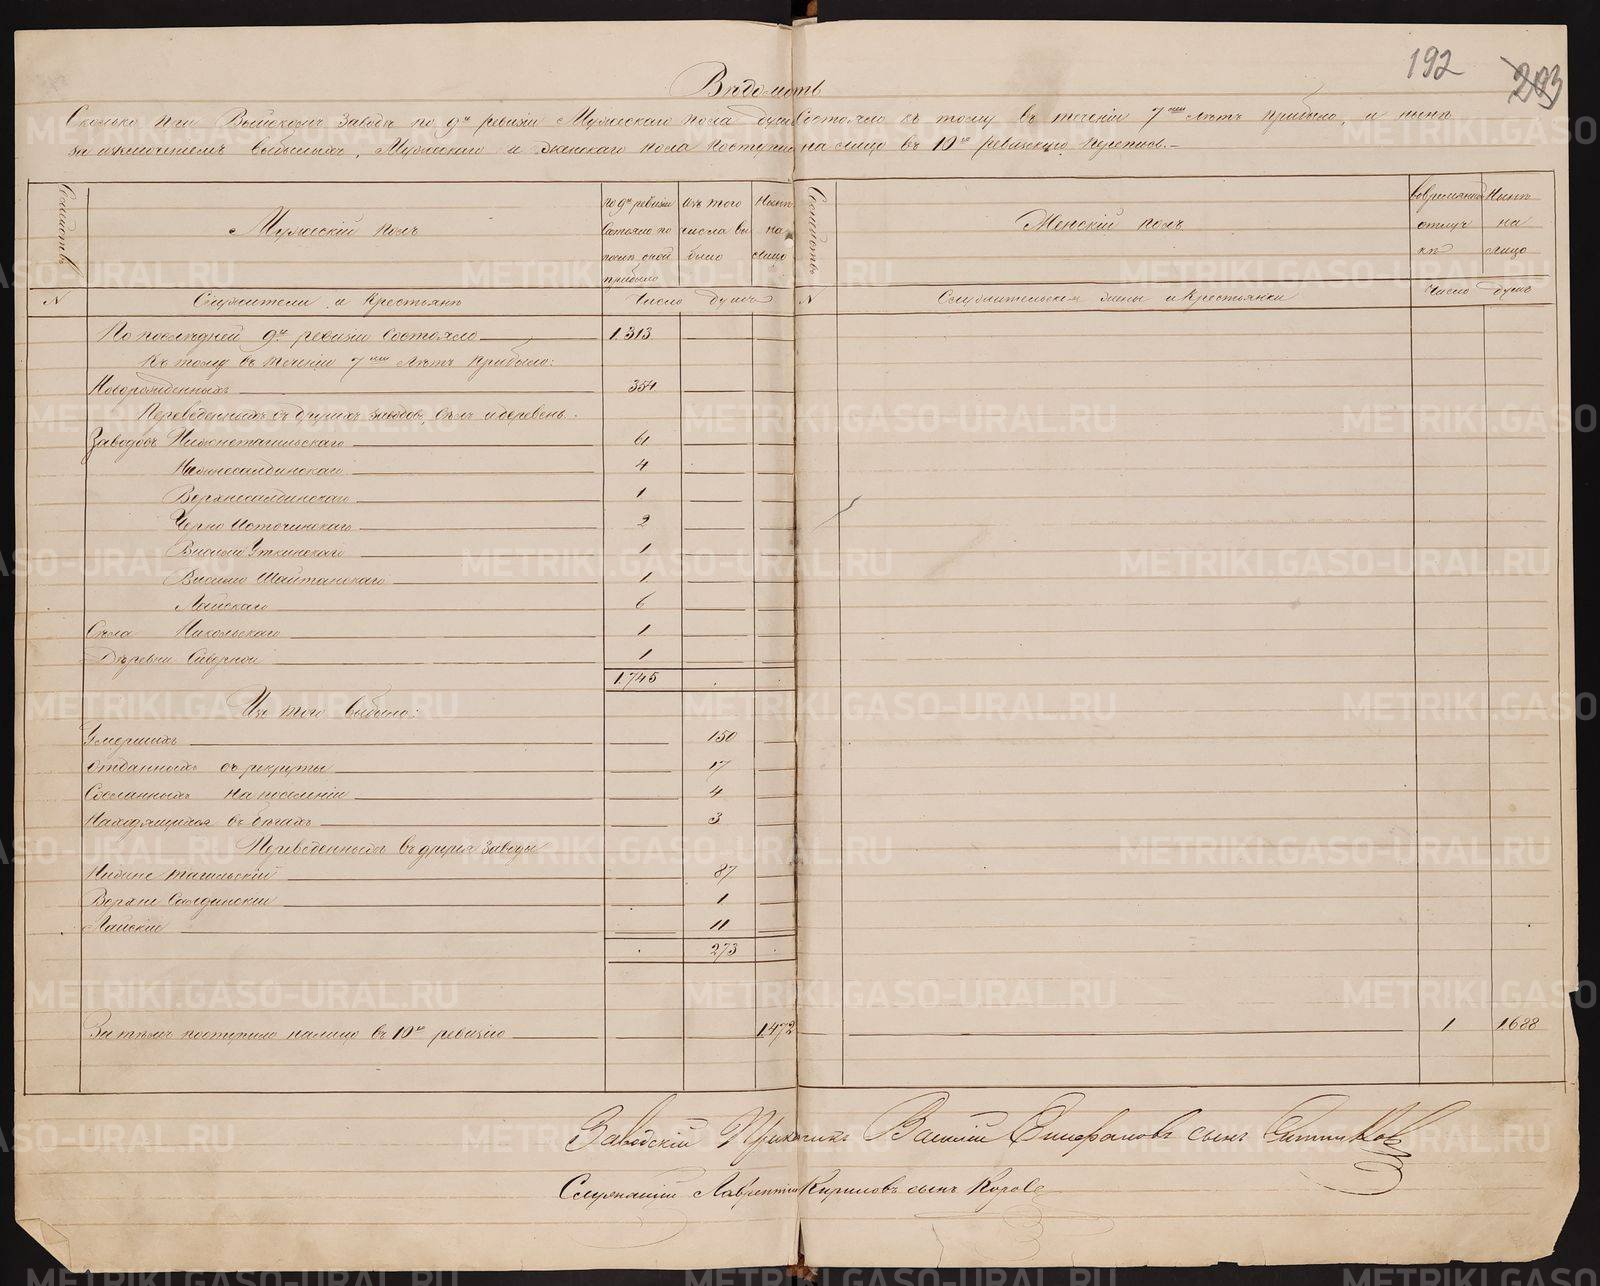 192
203
Вѣдомость
Сколько при Выйскомъ заводѣ по 9й ревизіи Мужескаго пола душъ состояло къ тому въ теченіи 7ми лѣтъ прибыло, и нынѣ
за изключеніемъ выбылыхъ, Мужескаго и женскаго пола поступило на лицо въ 10ю ревизскую перепись.—
Семействъ
Мужескій полъ
по 9й ревизіи состояло по послѣ оной прибыло
изъ того числа выбыло
Нынѣ на лицо
Семействъ
Женскій полъ
во временной отлучкѣ
Нынѣ на лицо
N
Служители и Крестьянъ
Число душъ
N
Служительскія жены и Крестьянки
Число душъ
По послѣдней 9й ревизіи состояло 1.313
Къ тому въ теченіи 7ми лѣтъ прибыло:
Новорожденныхъ 354
Переведенныхъ съ другихъ заводовъ, селъ и деревень.
Заводовъ Нижнетагильскаго 61
Нижнесалдинскаго 4
Верхнесалдинскаго 1
Черно Источинскаго 2
Висимо Уткинскаго 1
Висимо Шайтанскаго 1
Лайскаго 6
Села Никольскаго 1
Деревни Сиверной 1
1.745
Изъ того выбыло:
Умершихъ 150
Отданныхъ въ рекруты 17
Сосланныхъ на поселеніи 4
Находящихся въ бѣгахъ 3
Переведенныхъ въ другія заводы
Нижне Тагильскій 87
Верхне Салдинскій 1
Лайскій 11
273
Затѣмъ поступило налицо въ 10ю ревизію 1.472 1 1.688
Заводскій Прикащикъ Василій Епифановъ сынъ
Служащій Лаврентій Кириловъ сынъ
METRIKI.GASO-URAL.RU